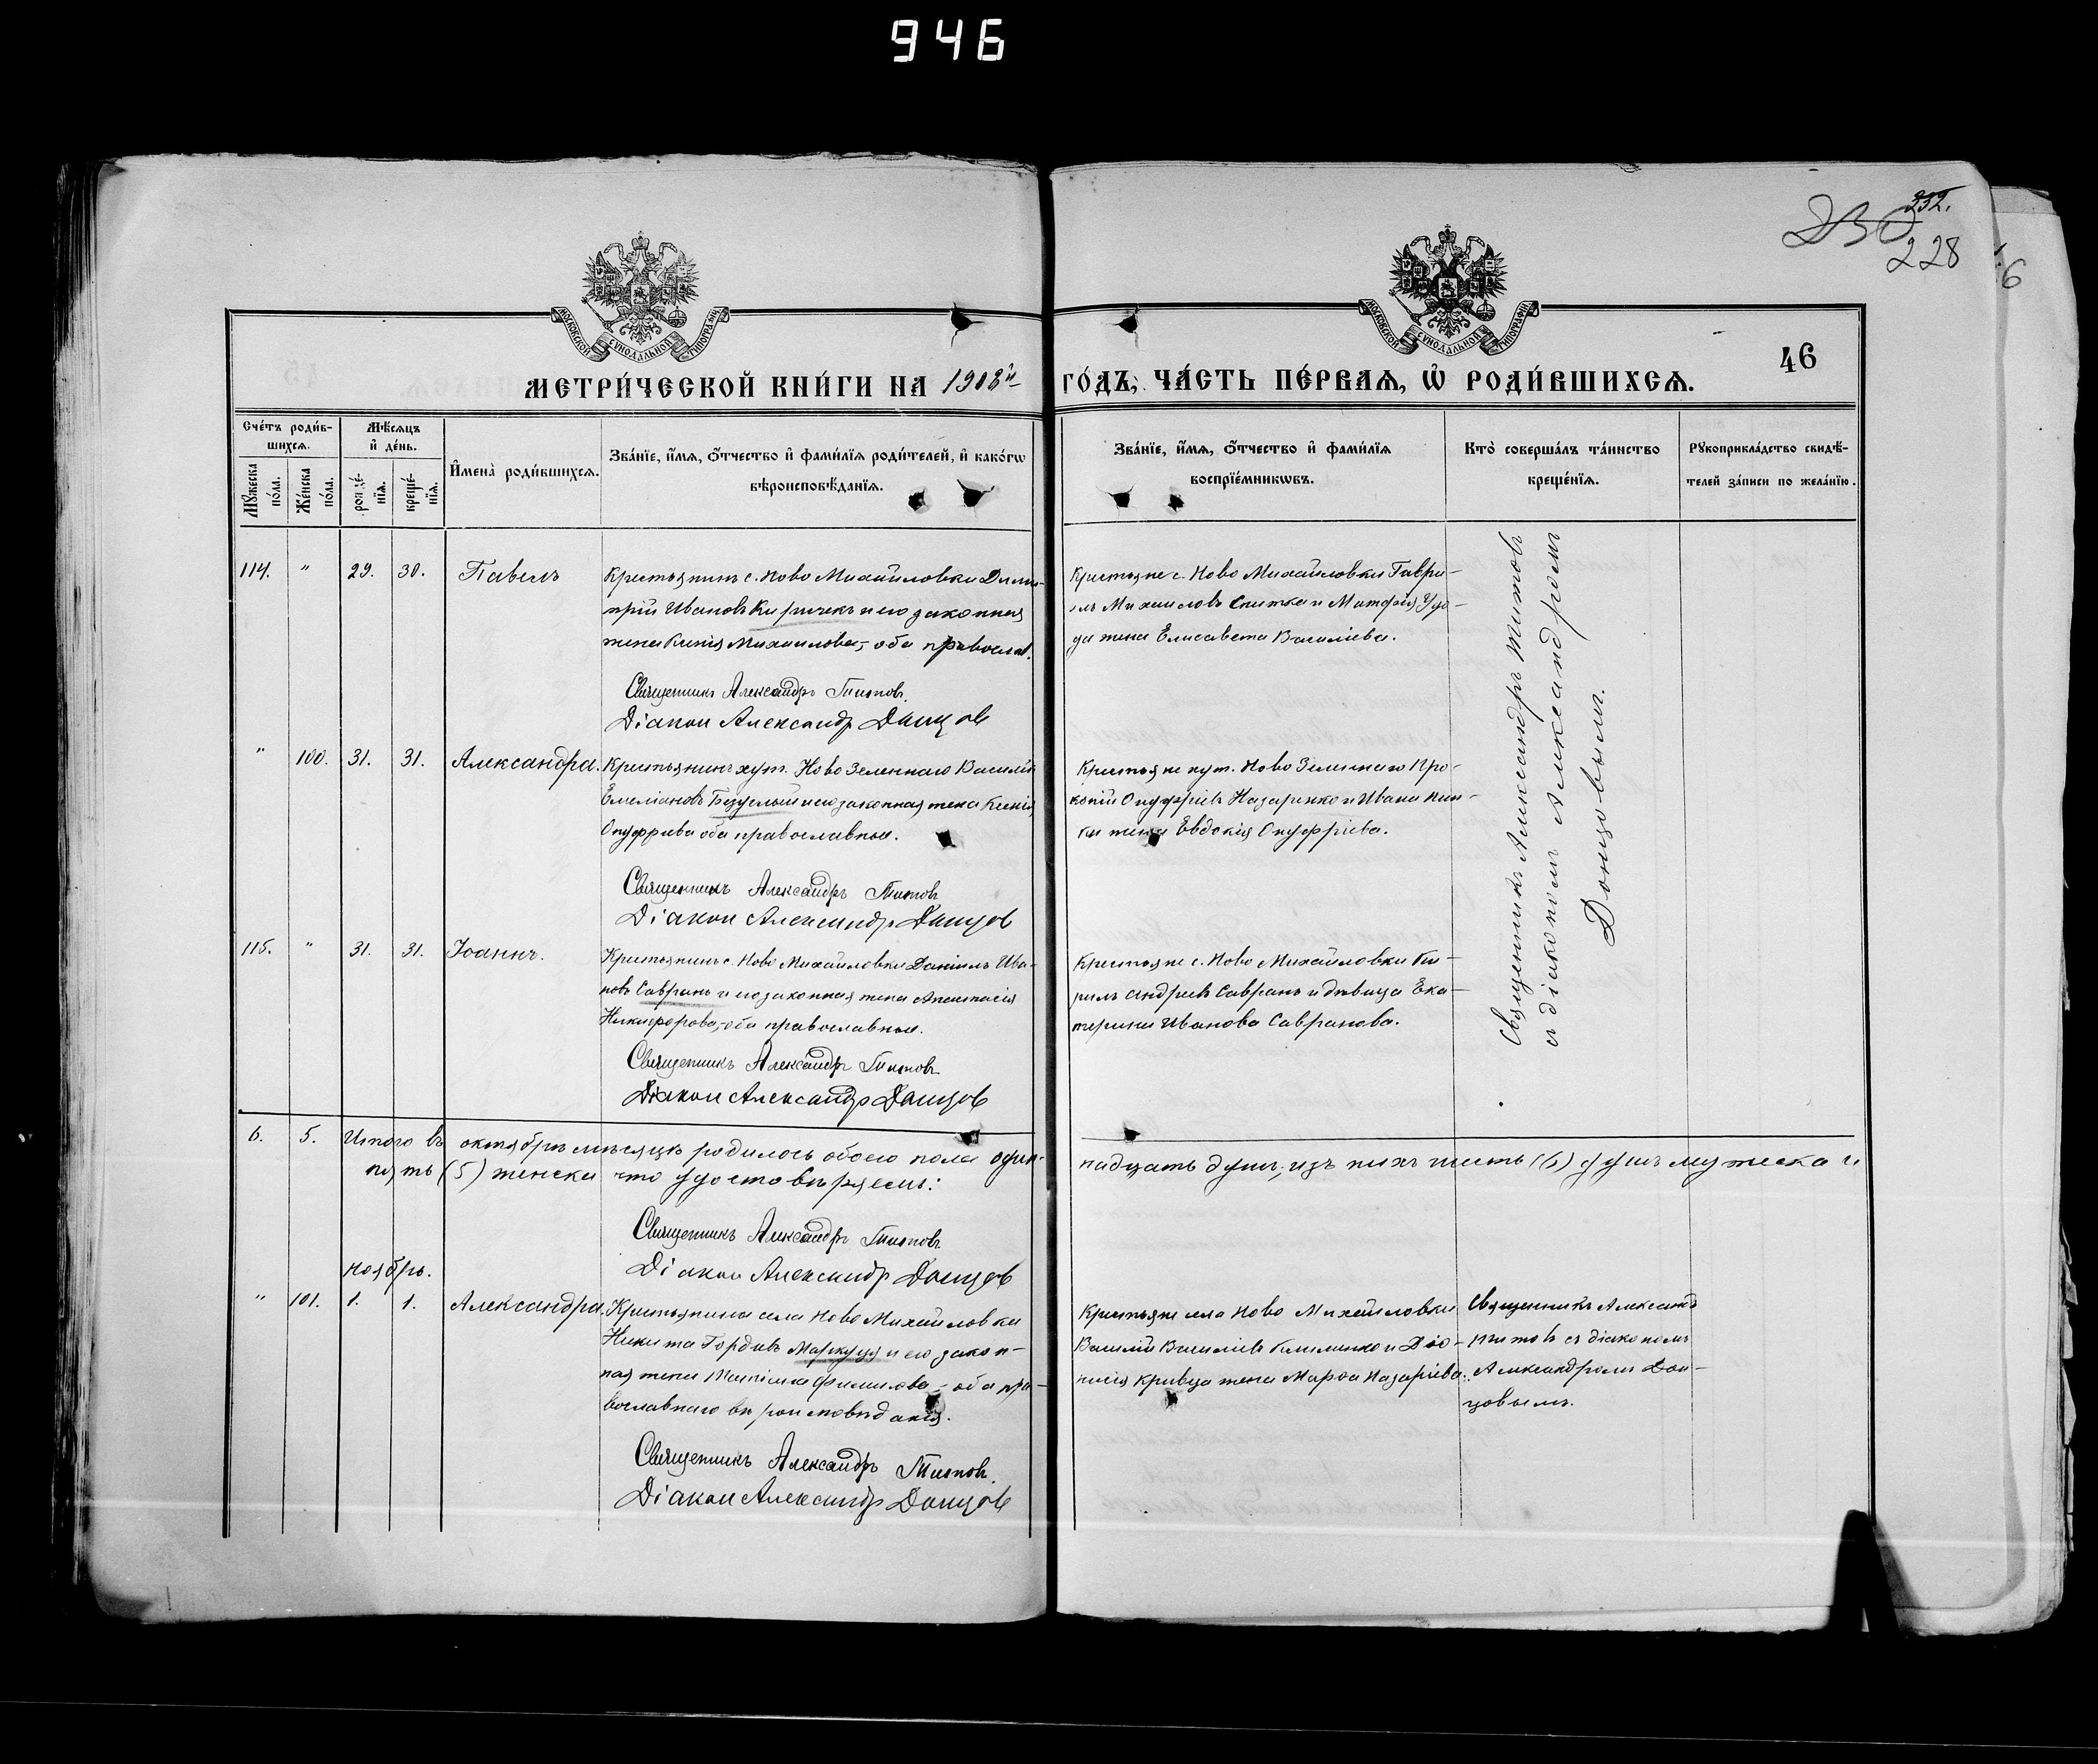 946
232.
230
228
6
МОСКОВСКОЙ СѴНОДАЛЬНОЙ ТИПОГРАФІИ
МОСКОВСКОЙ СѴНОДАЛЬНОЙ ТИПОГРАФІИ
46
МЕТРИ́ЧЕСКОЙ КНИ́ГИ НА 1908й
ГО́ДЪ, ЧА́СТЬ ПЕ́РВАЯ, Ѡ҆ РОДИ́ВШИХСЯ.
Сче́тъ роди́в-
шихся.
Мѣ́сяцъ
и҆ де́нь.
Мꙋ́жеска по́ла.
Же́нска по́ла.
рожде́-
нїя.
креще́-
нїя.
И҆мена̀ роди́вшихся.
Зва́нїе, и҆́мя, ѻ҆́тчество и҆ фами́лїя роди́телей, и҆ како́гѡ
вѣроисповѣ́данїя.
Зва́нїе, и҆́мя, ѻ҆́тчество и҆ фами́лїя
воспрїе́мникѡвъ.
Кто̀ соверша́лъ та́инство
креще́нїя.
Рꙋкоприкла́дство свидѣ́-
телей за́писи по жела́нїю.
114. " 29. 30. Павелъ
Крестьянинъ с. Ново Михайловки Дими-
трій Ивановъ Киричекъ и его законная
жена Ксенія Михаилова, оба православ.
Священникъ Александръ Титовъ.
Діакон Александр Донцов
Крестьяне с. Ново Михайловки Гаври-
илъ Михаиловъ Снитка и Матфея Удо-
да жена Елисавета Василіева.
Священникъ Александръ Титовъ
съ діакономъ Александромъ
Донцовымъ.
" 100. 31. 31. Александра.
Крестьянинъ хут. Ново Зеленнаго Василій
Емеліановъ Безуглый и его законная жена Ксенія
Онуфріева оба православные.
Священникъ Александръ Титовъ
Діакон Александр Донцов
Крестьяне хут. Ново Зеленнаго Про-
копій Онуфріевъ Назаренко и Ивана
жена Евдокія Онуфріева.
115. " 31. 31. Іоаннъ.
Крестьянинъ с. Ново Михайловки Даніилъ Ива-
новъ Савранъ и его законная жена Анастасія
Никифорова, оба православные.
Священникъ Александръ Титовъ
Діакон Александр Донцов
Крестьяне с. Ново Михайловки Ки-
рилъ Андреевъ Савранъ и дѣвица Ека-
терина Иванова Савранова.
6. 5. Итого въ октябрѣ мѣсяцѣ родилось обоего пола один-
надцать душъ; изъ нихъ шесть (6) душъ мужеска и
пять (5) женска что удостовѣряемъ:
Священникъ Александръ Титовъ
Діакон Александр Донцов
Ноябрь.
" 101. 1. 1. Александра.
Крестьянина села Ново Михайловки
Никита Гордѣевъ Маркуця и его закон-
ная жена Филипова, оба пра-
вославнаго вѣроисповѣданія.
Священникъ Александръ Титовъ.
Діакон Александр Донцов
Крестьяне села Ново Михайловки
Василій Василіевъ Клименко и Діо-
нисія Кривца жена Марфа Назаріева.
Священникъ Александръ
Титовъ съ діакономъ
Александромъ Дон-
цовымъ.